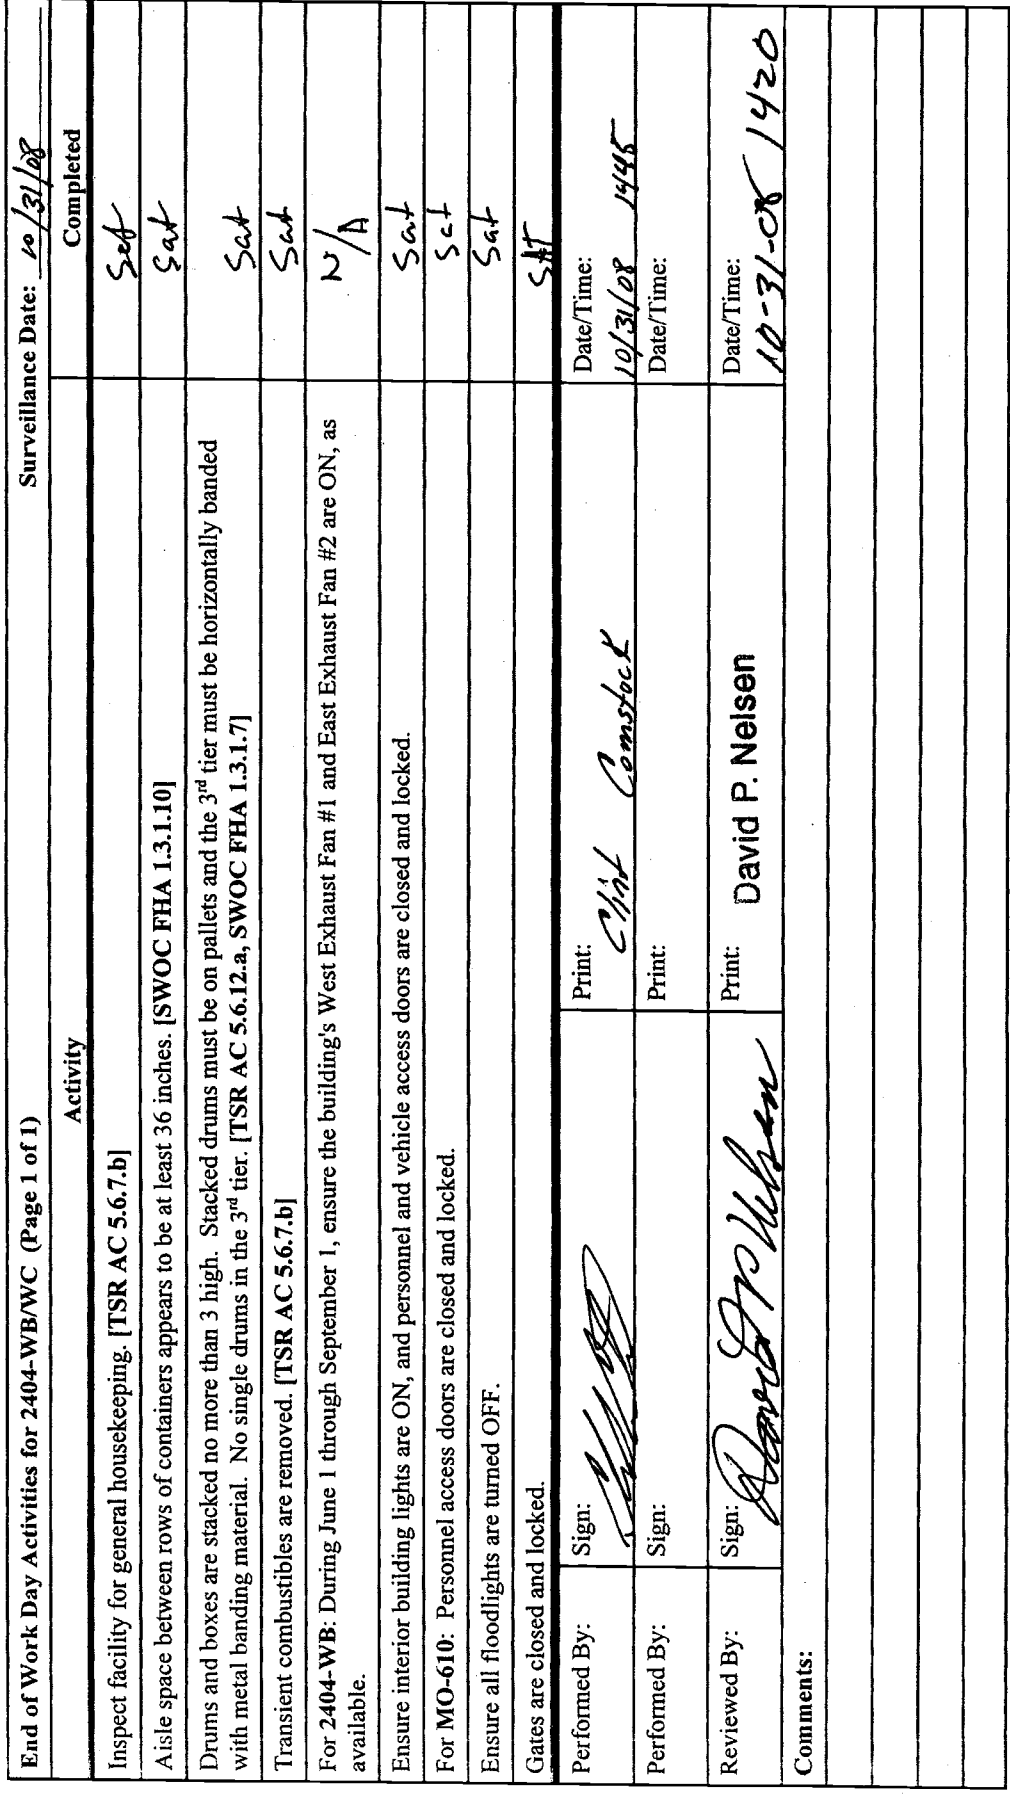 End of Work Day Activities for 2404-WB/WC (Page 1 of 1) Surveillance Date: 10/31/08
Activity Completed
Inspect facility for general housekeeping. [TSR AC 5.6.7.b] Sat
Aisle space between rows of containers appears to be at least 36 inches. [SWOC FHA 1.3.1.10] Sat
Drums and boxes are stacked no more than 3 high. Stacked drums must be on pallets and the 3rd tier must be horizontally banded
with metal banding material. No single drums in the 3rd tier. [TSR AC 5.6.12.a, SWOC FHA 1.3.1.7] Sat
Transient combustibles are removed. [TSR AC 5.6.7.b] Sat
For 2404-WB: During June 1 through September 1, ensure the building's West Exhaust Fan #1 and East Exhaust Fan #2 are ON, as
available. N/A
Ensure interior building lights are ON, and personnel and vehicle access doors are closed and locked. Sat
For MO-610: Personnel access doors are closed and locked. Sat
Ensure all floodlights are turned OFF. Sat
Gates are closed and locked. SAT
Performed By: Sign: Print: Clint Comstock Date/Time: 10/31/08 1445
Performed By: Sign: Print: Date/Time:
Reviewed By: Sign: David P Nelsen Print: David P. Nelsen Date/Time: 10-31-08 1420
Comments: